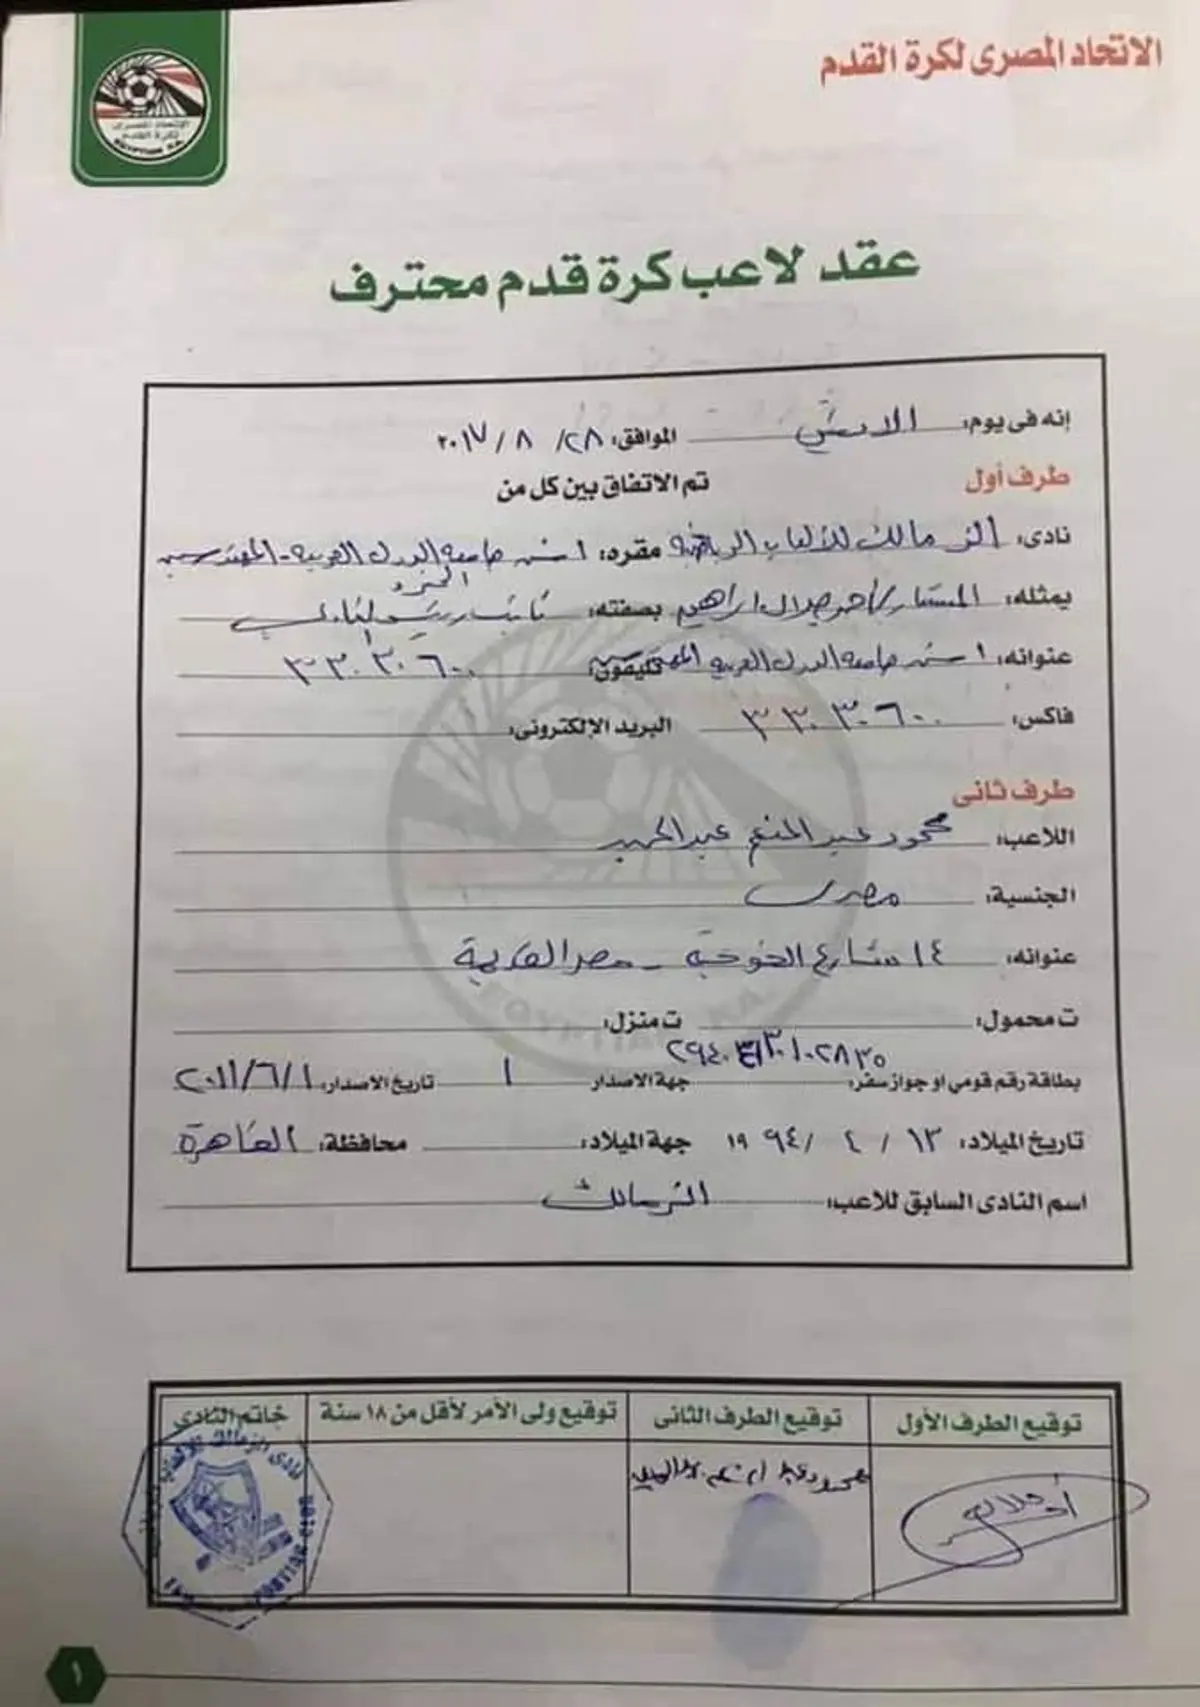 الاتحاد المصرى لكرة القدم
الإتحاد المصرى
لكرة القدم
EGYPTIAN F.A.
عقد لاعب كرة قدم محترف
إنه فى يوم: الاثنين الموافق: ٢٨ / ٨ / ٢٠١٧
طرف أول تم الاتفاق بين كل من
نادى: الزمالك للألعاب الرياضية مقره: ١ ش جامعة الدول العربية - المهندسين
الجيزة
يمثله: المستشار / أحمد جلال ابراهيم بصفته: نائب رئيس النادى
عنوانه: ١ ش جامعة الدول العربية المهندسين تليفون: ٣٣٠٣٠٦٠٠
فاكس: ٣٣٠٣٠٦٠٠ البريد الإلكترونى:
طرف ثانى
اللاعب: محمود عبد المنعم عبد الحميد
الجنسية: مصرى
عنوانه: ١٤ شارع الخوخة - مصر القديمة
ت محمول: ت منزل:
بطاقة رقم قومي او جواز سفر: جهة الاصدار تاريخ الاصدار: ٢٠١١/٦/١
تاريخ الميلاد: ١٣ / ٤ / ١٩٩٤ جهة الميلاد: محافظة: القاهرة
اسم النادى السابق للاعب: الزمالك
توقيع الطرف الأول توقيع الطرف الثانى توقيع ولى الأمر لأقل من ١٨ سنة خاتم النادى
محمود عبد المنعم عبد الحميد
نادى الزمالك للألعاب
١